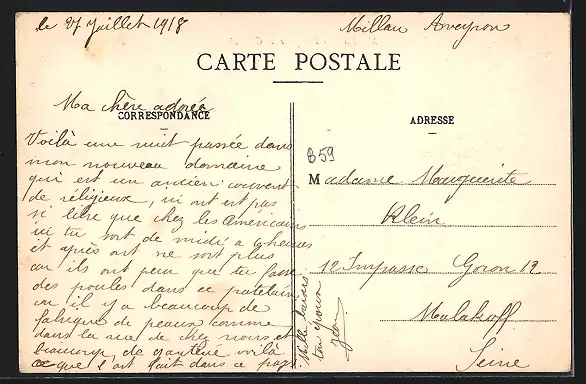 le 27 Juillet 1918
Millau Aveyron
CARTE POSTALE
Ma chère adorée
CORRESPONDANCE
Voilà une nuit passée dans
mon nouveau domaine
qui est un ancien couvent
de réligieux, ici ont est pas
si libre que chez les Américains
ici tu sort de midi a 9 heures
et après ont ne sort plus
car ils ont peur que tu fasse
des poules dans ce patelain
car il y a beaucoup de
fabrique de peaux comme
dans la rue de chez nous et
beaucoup de voilà
ce que l'ont fait dans ce pays
Mille baisers
ton
Jean
ADRESSE
859
Madame Marguerite
Klein
12 Impasse Goron 12
Malakoff
Seine